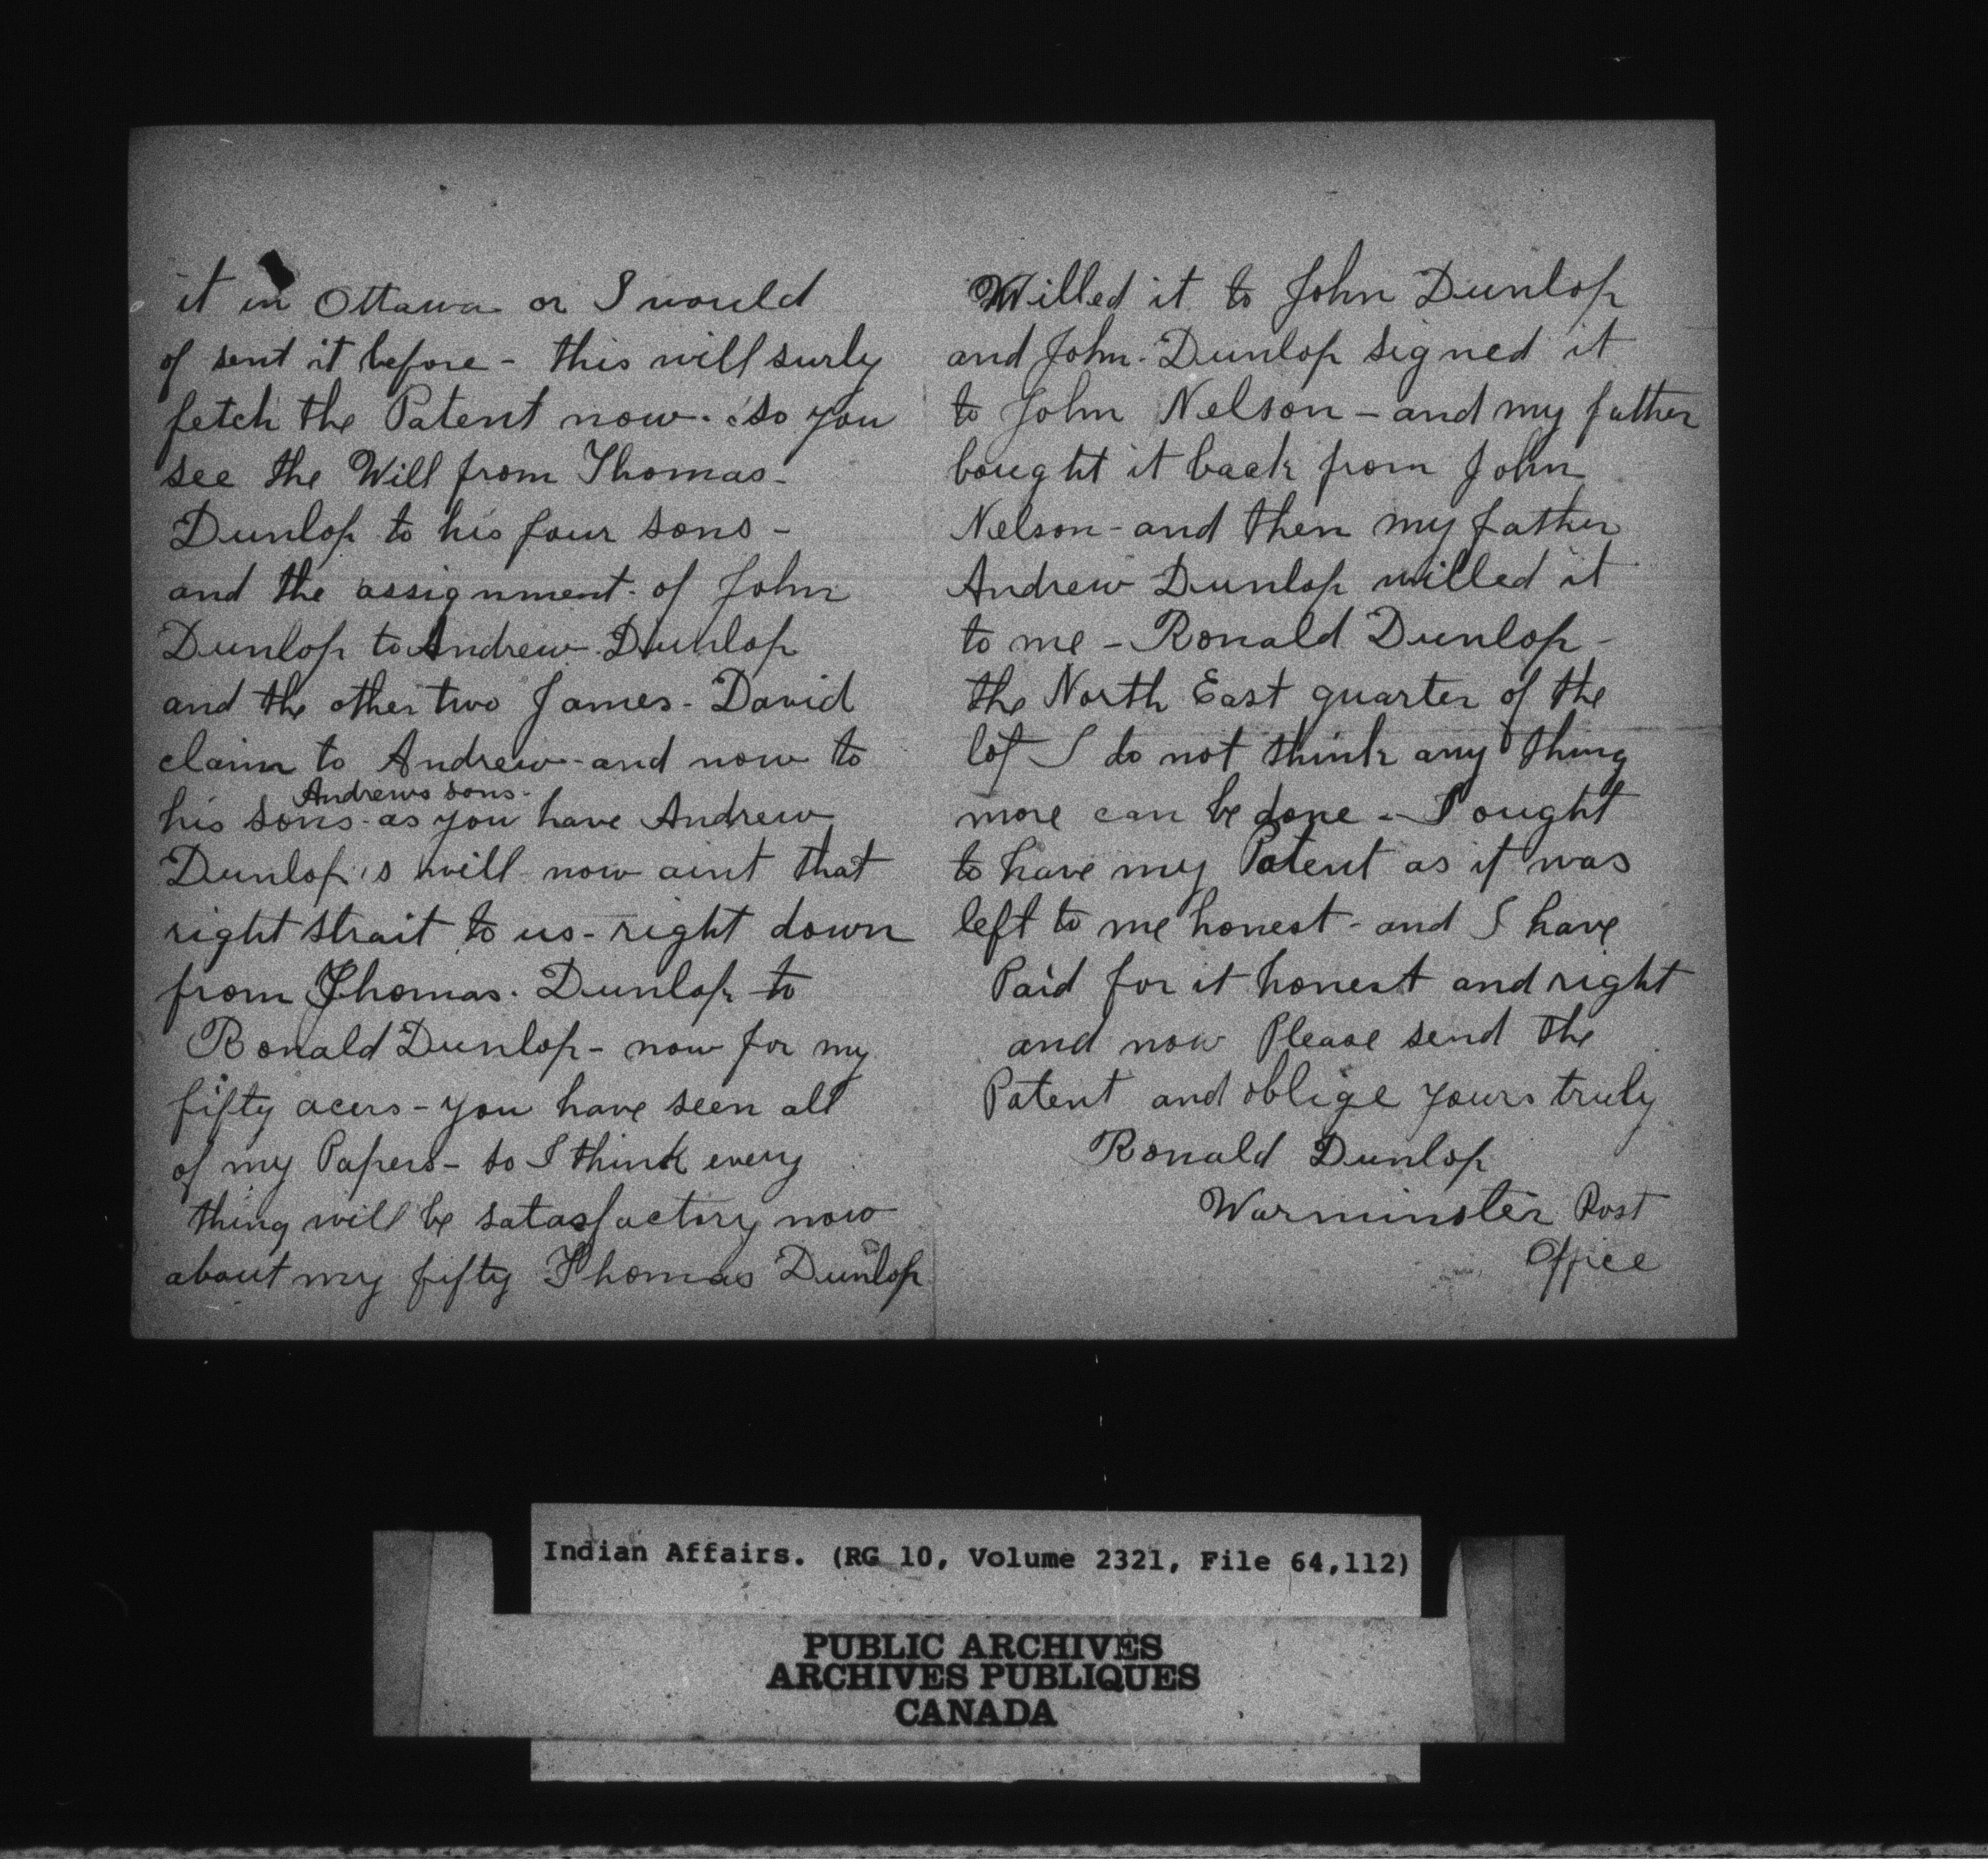 it in Ottawa or I would
of sent it before - this will surly
fetch the Patent now. so you
see the Will from Thomas-
Dunlop to his four sons -
and the assignment. of John
Dunlop to Andrew Dunlop
and the other two James - David
claim to Andrew - and now to
Andrews sons-
his sons - as you have Andrew
Dunlop's will now aint that
right strait to us - right down
from Thomas. Dunlop to
Ronald Dunlop - now for my
fifty acers - you have seen all
of my Papers - so I think every
thing will be satasfactory now
about my fifty Thomas Dunlop
Willed it to John Dunlop
and John. Dunlop signed it
to John Nelson - and my father
bought it back from John
Nelson - and then my father
Andrew Dunlop willed it
to me - Ronald Dunlop -
the North East quarter of the
lot I do not think any thing
more can be done - I ought
to have my Patent as it was
left to me honest - and I have
Paid for it honest and right
and now Please send the
Patent and oblige yours truly
Ronald Dunlop
Warminster Post
Office
Indian Affairs. (RG 10, Volume 2321, File 64,112)
PUBLIC ARCHIVES
ARCHIVES PUBLIQUES
CANADA